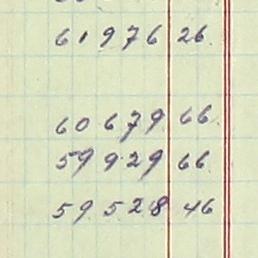 61976 26
60679 66
59929 66
59528 46